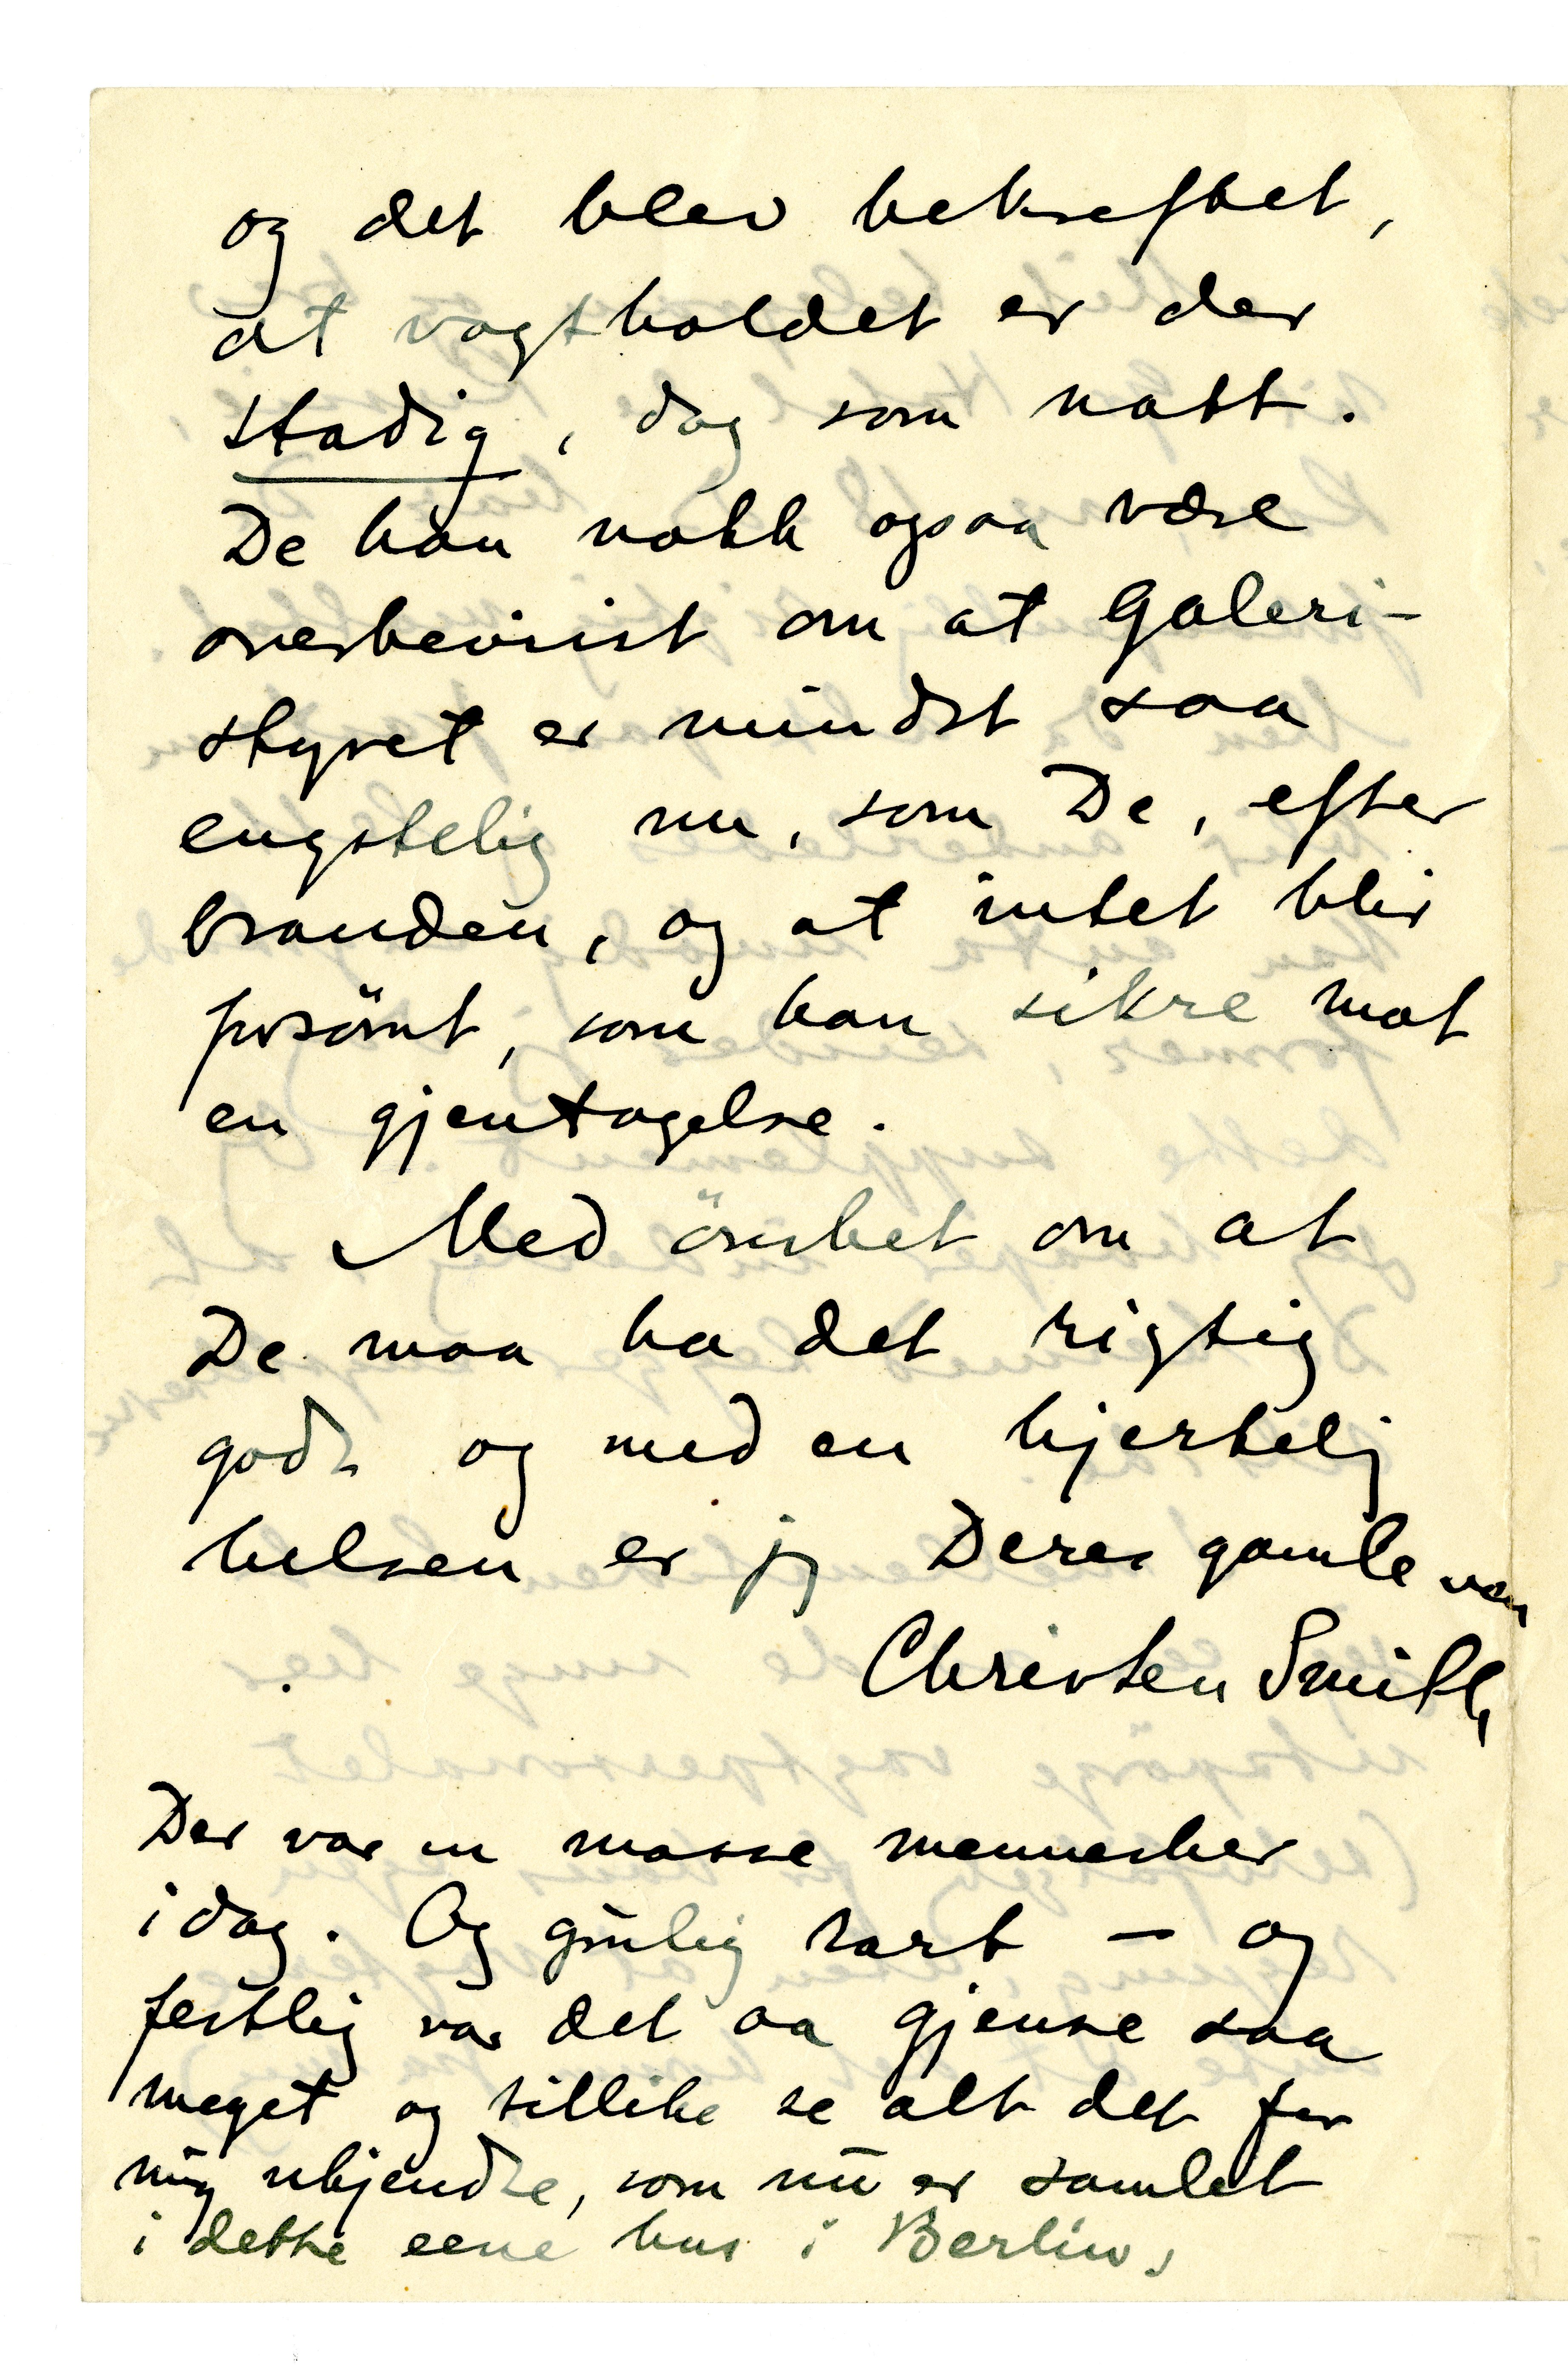 og det blev bekreftet,
at vagtholdet er der
stadig, dag som natt.
De kan nokk ogsaa være
overbevist om at Galeri-
styret er mindst saa
engstelig nu, som De, efter
branden, og at intet blir
forsömt, som kan sikre mot
en gjentagelse.
Med önsket om at
De maa ha det rigtig
godt og med en hjertelig
hilsen er jeg Deres gamle ven
Christen Smith
Der var en masse mennesker
idag. Og rart – og
festlig var det aa gjense saa
meget og tillike se alt det for
mig ukjendte, som nu er samlet
i dette eene hus i Berlin,